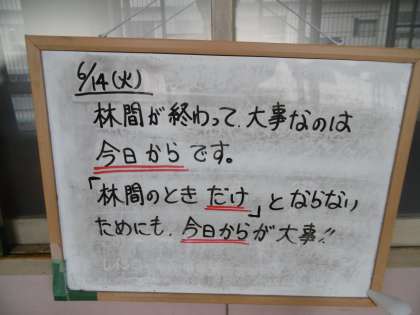 6/14(火)
林間が終わって、大事なのは
今日からです。
「林間のときだけ」とならない
ためにも、今日からが大事!!